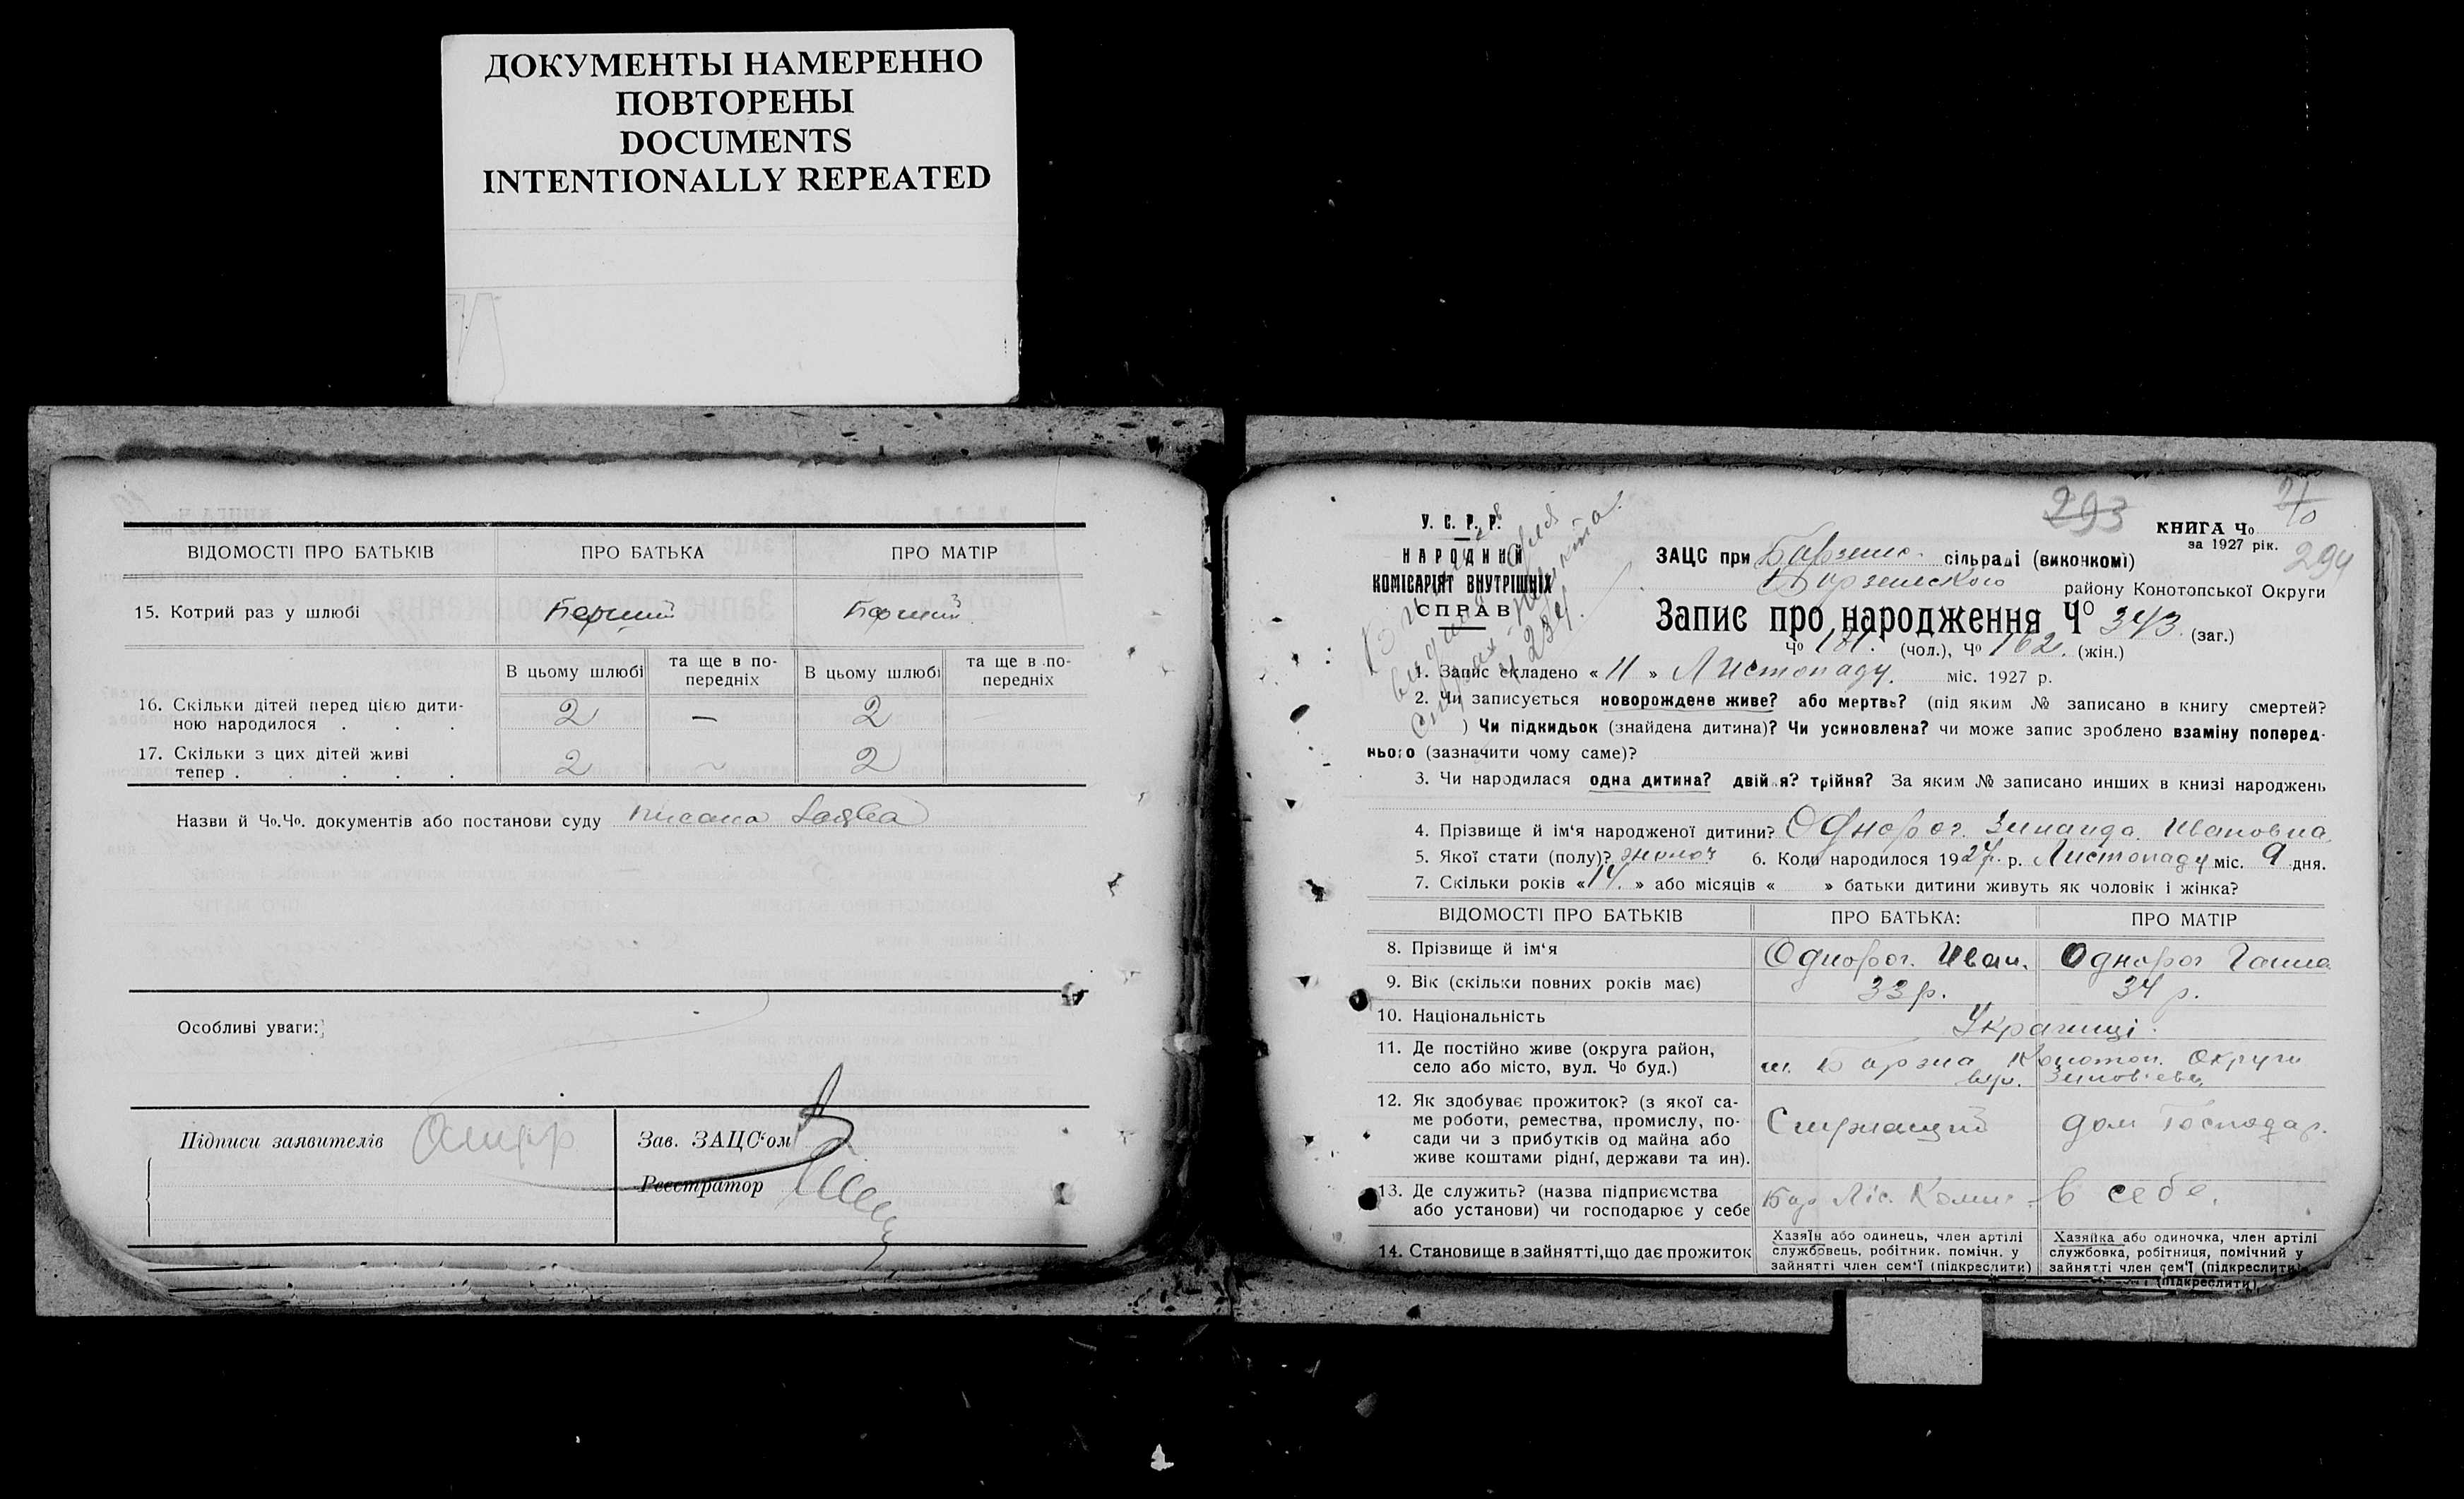 ДОКУМЕНТЫ НАМЕРЕННО
ПОВТОРЕНЫ
DOCUMENTS
INTENTIONALLY REPEATED
ВІДОМОСТІ ПРО БАТЬКІВ ПРО БАТЬКА ПРО МАТІР
15. Котрий раз у шлюбі Перший Перший
В цьому шлюбі та ще в по- В цьому шлюбі та ще в по-
передніх передніх
16. Скільки дітей перед цією дити-
ною народилося . . . 2 — 2
17. Скільки з цих дітей живі
тепер . . . . . 2 ~ 2
Назви й Чо.Чо. документів або постанови суду
Особливі уваги:
Підписи заявителів
Зав. ЗАЦС‘ом
Реєстратор
У. С. Р. Р.
НАРОДНИЙ
КОМІСАРІЯТ ВНУТРІШНІХ
СПРАВ
293
КНИГА Чо
за 1927 рік.
294
ЗАЦС при Борзенс. сільраді (виконкомі)
Борзенского району Конотопської Округи
Запис про народження Чо 343 (заг.)
Чо 181. (чол.), Чо 162. (жін.)
1. Запис складено « 11 » Листопаду. міс. 1927 р.
2. Чи записується новорождене живе? або мертве? (під яким № записано в книгу смертей?
) Чи підкидьок (знайдена дитина)? Чи усиновлена? чи може запис зроблено взаміну поперед-
нього (зазначити чому саме)?
3. Чи народилася одна дитина? двійня? трійня? За яким № записано инших в книзі народжень
4. Прізвище й ім‘я народженої дитини? Однорог. Зинаида. Ивановна
5. Якої стати (полу)? жіноч 6. Коли народилося 1927 р. р. Листопаду міс. 9 дня.
7. Скільки років «14. » або місяців « » батьки дитини живуть як чоловік і жінка?
ВІДОМОСТІ ПРО БАТЬКІВ ПРО БАТЬКА: ПРО МАТІР
8. Прізвище й ім‘я Однорог. Иван. Однорог Ганна
9. Вік (скільки повних років має) 33 р. 34 р.
10. Національність Українці.
11. Де постійно живе (округа район, м. Борзна Конотоп. Округи
село або місто, вул. Чо буд.) вул. Зинов'ева
12. Як здобуває прожиток? (з якої са-
ме роботи, ремества, промислу, по- Служащий дом Господар.
сади чи з прибутків од майна або
живе коштами рідні, держави та ин).
13. Де служить? (назва підприємства Бор Ліс. в себе.
або установи) чи господарює у себе
14. Становище в зайнятті, що дає прожиток
Хазяїн або одинець, член артілі
службовець, робітник. помічн. у
зайнятті член сем‘ї (підкреслити)
Хазяйка або одиночка, член артілі
службовка, робітниця, помічний у
зайнятті член сем‘ї (підкреслити)
(підкреслити)